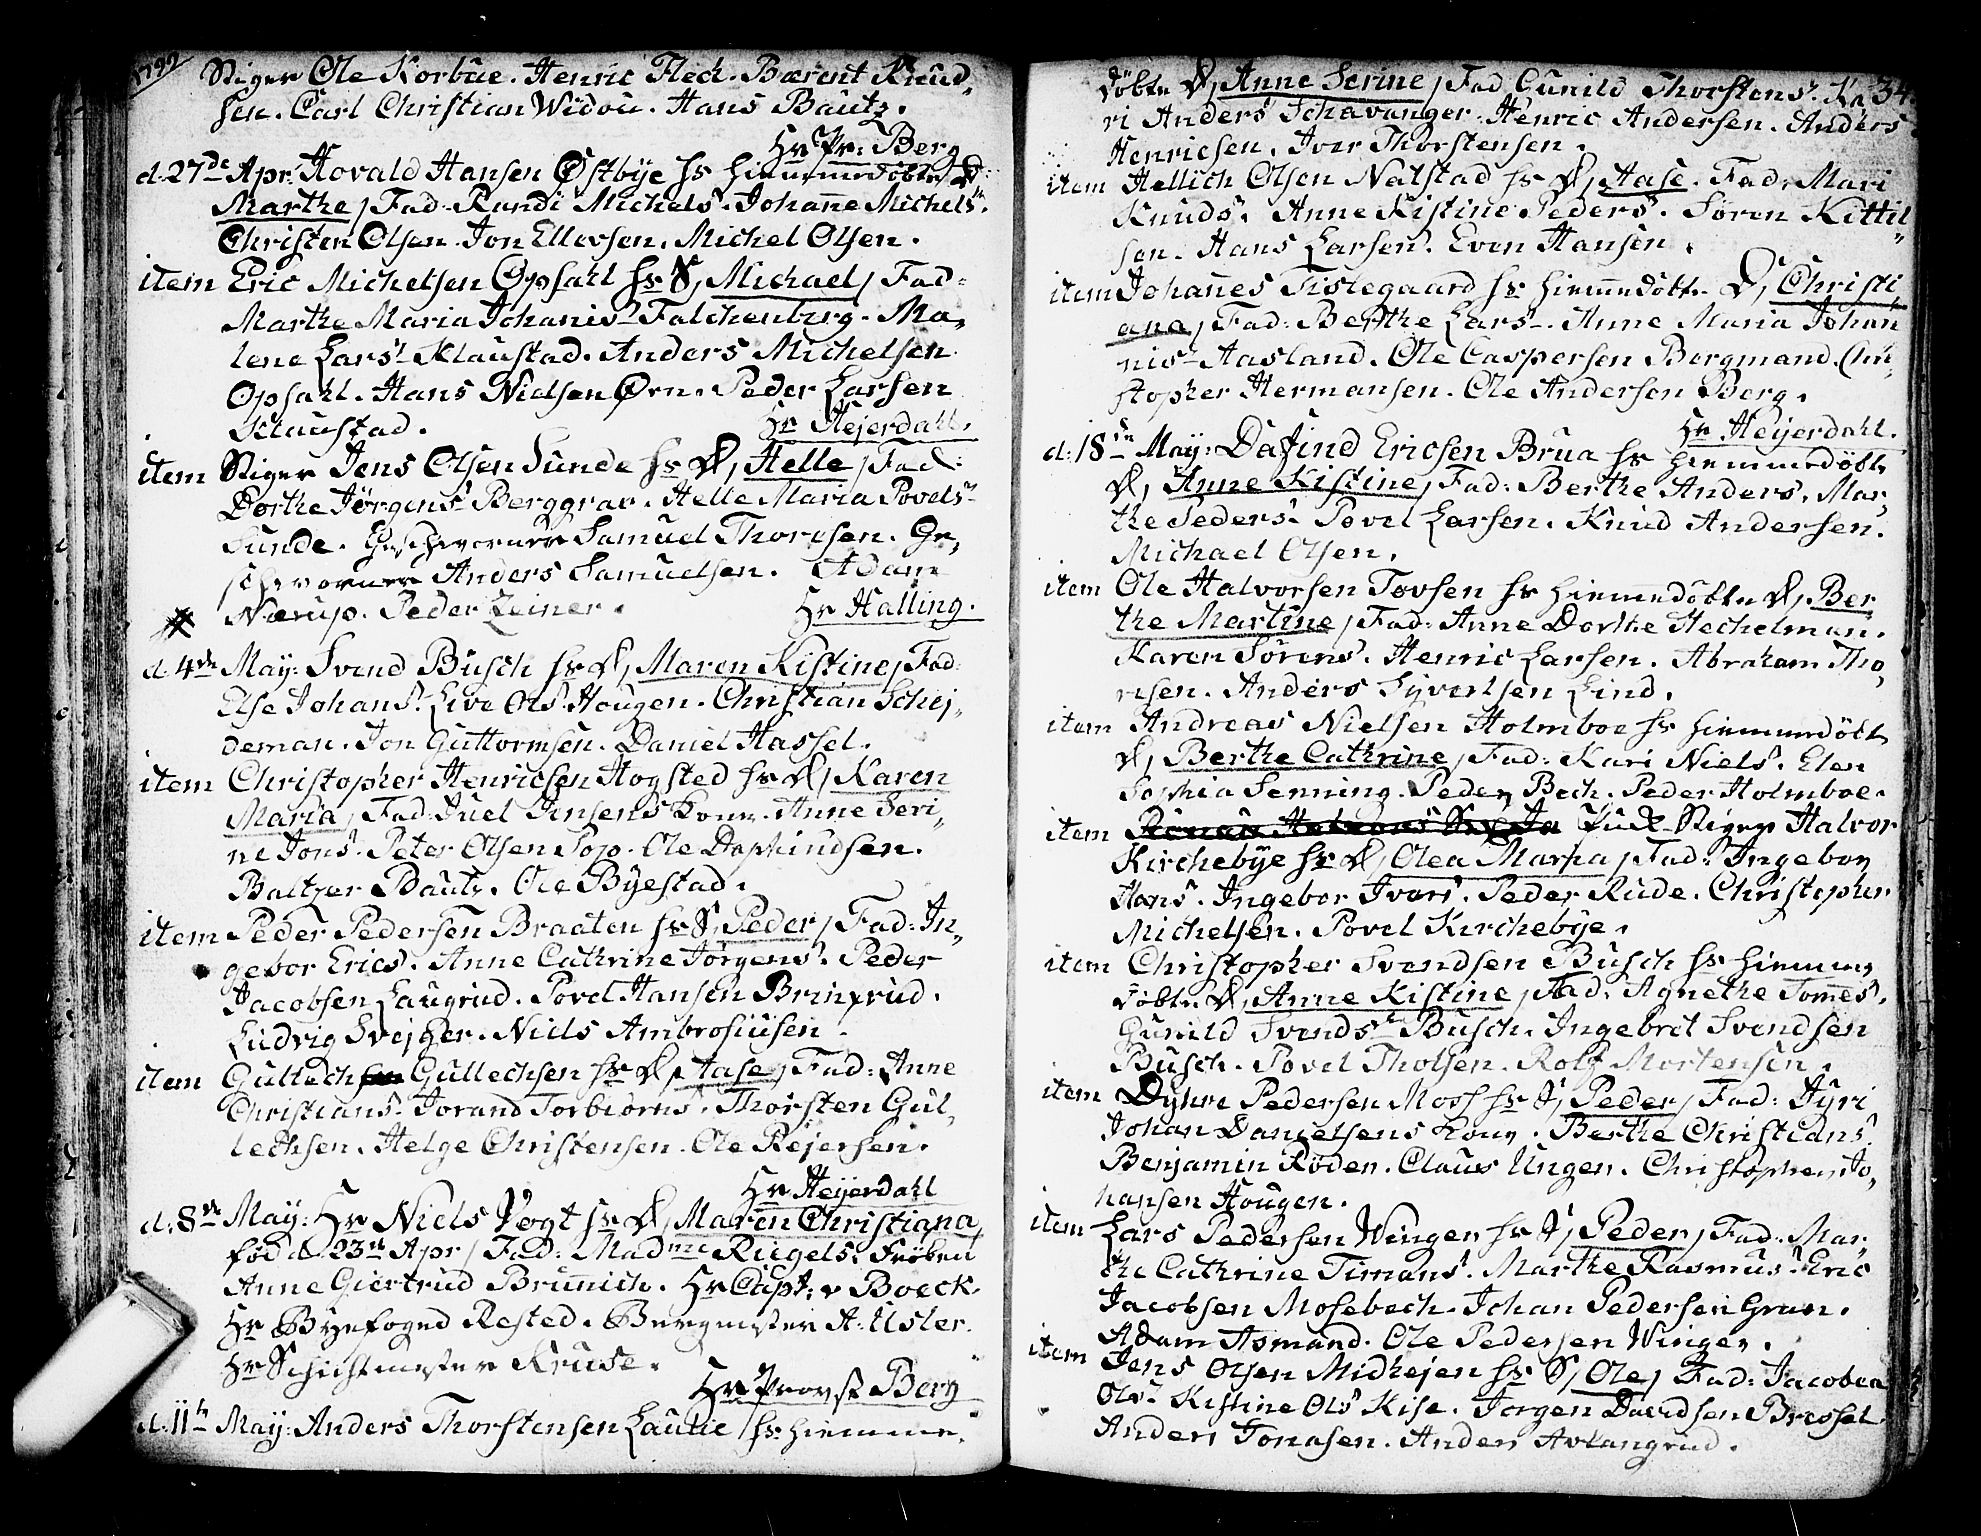 1792
Stiger Ole Korbüe. Henric Fleck. Bærent Knud-
sen. Carl Christian Widou. Hans Bautz.
Hr Pr: Berg
d. 27de Apr: Hovald Hansen Østbÿe hs hiemmedöbte D:
Marthe / Fad: Randi Michels. Johañe Michels.
Christen Olsen. Jon Ellevsen. Michel Olsen.
item Eric Michelsen Opsahl hs S, Michael / Fad:
Marthe Maria Johanis Falchenberg. Ma-
lene Lars Klaustad. Anders Michelsen
Opsahl. Hans Nielsen Ørn. Peder Larsen
Klaustad.
Hr Heÿerdahl.
item Stiger Jens Olsen Sunde hs D, Helle / Fad:
Dorthe Jørgens Berggrav. Helle Maria Povels
Sunde. Geschworner Samuel Thoresen. Ge-
schworner Anders Samuelsen. Adam
Nærup. Peder Zeiner.
Hr Halling.
d. 4de May: Svend Büsch hs D, Maren Kistine / Fad:
Else Johans. Live Ols Hougen. Christian Schej-
deman. Jon Guttormsen. Daniel Hassel.
item Christopher Henricsen Hogsted hs D, Karen
Maria / Fad: Juel Jensens Kone. Anne Seri-
ne Jons. Peter Olsen Pop. Ole Daphindsen.
Baltzer Bautz. Ole Bÿestad.
item Peder Pedersen Braaten hs S, Peder / Fad: In-
gebor Erics. Anne Cathrine Jørgens. Peder
Jacobsen Laugrud. Povel Hansen
Ludvig Svejger. Niels Ambrosiusen.
item Gullech Gullechsen hs D, Aase / Fad: Anne
Christians. Jorand Torbiorns. Thorsten Gul-
lechsen. Helge Christensen. Ole Rejersen.
Hr Heÿerdahl
d. 8de May: Hr Niels Vogt hs D, Maren Christiana,
fød d 23de Apr / Fad: Madme Riegels. Frøken
Anne Giertrud Brünich. Hr Capt: v Boeck.
Hr Bÿefoged Rested. Bergmester A: Usler.
Hr Schichtmester Kruse.
Hr Provst Berg
d. 11te May: Anders Thorstensen Lautie hs hiemme-
34
döbte D, Anne Serine / Fad Gunild Thorstens. Ka-
ri Anders Schavanger. Henric Andersen. Anders
Henricsen. Iver Thorstensen.
item Hellich Olsen Nalstad hs D, Aase. Fad: Mari
Knuds. Anne Kistine Peders. Søren Kittil-
sen. Hans Larsen. Even Hansen.
item Johañes Tislegaard hs hiemmedöbte D, Christi
ana, / Fad: Berthe Lars. Anne Maria Johan-
nis Aasland. Ole Caspersen Bergmand. Chri-
stopher Hermansen. Ole Andersen Berg.
Hr Heÿerdahl.
d. 18de May: Dafind Ericsen Brua hs hiemmedöbte
D, Anne Kistine / Fad: Berthe Anders. Mar-
the Peders. Povel Larsen. Knud Andersen.
Michael Olsen.
item Ole Halvorsen Tovsen hs hiemmedöbte D, Ber
the Martine / Fad: Anne Dorthe Hechelman.
Karen Sörens. Henric Larsen. Abraham Tho-
resen. Anders Syvertsen Lind.
item Andreas Nielsen Holmboe hs hiemmedöbte
D, Berthe Cathrine / Fad: Kari Niels. Elen
Sophia Senning. Peder Bech. Peder Holmboe.
item Puck-Stiger Halvor
Kirchebÿe hs D, Olea Maria / Fad: Ingebor
Hans. Ingebor Ivars. Peder Rude. Christopher
Michelsen. Povel Kirchebÿe.
item Christopher Svendsen Busch hs hiemme-
döbte D, Anne Kistine / Fad: Agnethe Tommes.
Gunild Svends Busch. Ingebret Svendsen
Busch. Povel Tholsen. Rolf Mortensen.
item Dÿhre Pedersen Moss hs S, Peder / Fad: Jÿri
Johan Danielsens Kone. Berthe Christians.
Benjamin Röden. Claus Ungen. Christopher Jo-
hansen Hougen.
item Lars Pedersen Winger hs S, Peder / Fad: Mar-
the Cathrine Timans. Marthe Rasmus. Eric
Jacobsen Mosebech. Johan Pedersen Gran.
Adam Asmand. Ole Pedersen Winger.
item Jens Olsen Midhejen hs S, Ole / Fad: Jacobea
Ols. Kistine Ols Kise. Jörgen Davidsen Bressel.
Anders Tonasen. Anders Avlangrud.